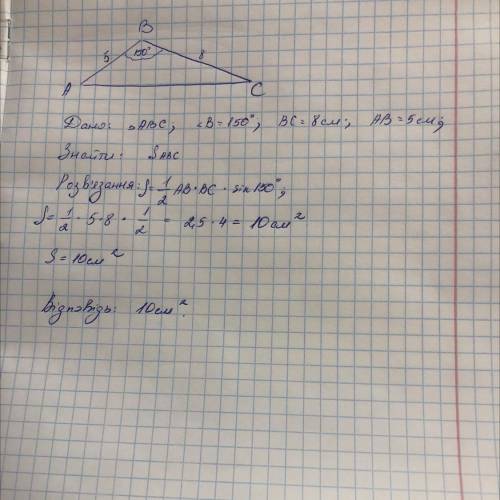 B
5 150° 8
A C
Дано: △ABC; ∠B=150°; BC=8см; AB=5см;
Знайти: S ABC
Розв'язання: S=1/2 AB·BC·sin150°;
S=1/2·5·8·1/2=2,5·4=10см²
S=10см²
Відповідь: 10см².